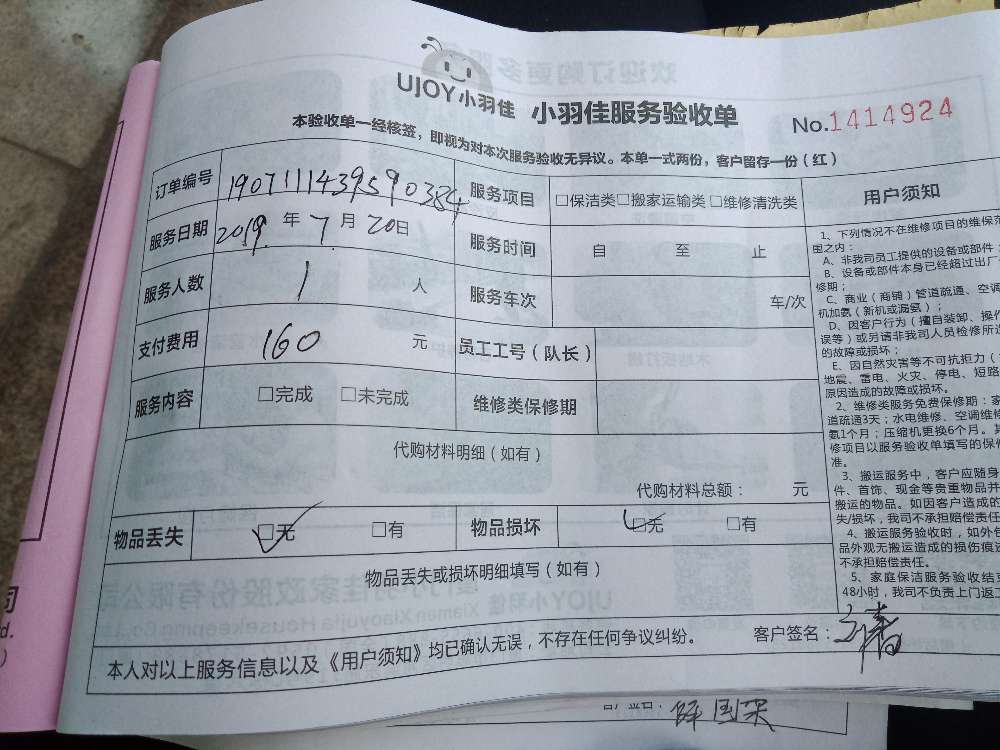 UJOY小羽佳 小羽佳服务验收单 No.1414924
本验收单一经核签，即视为对本次服务验收无异议。本单一式两份，客户留存一份（红）
订单编号 190711143959038​4 服务项目 □保洁类□搬家运输类□维修清洗类
服务日期 2019年7月20日 服务时间 自 至 止
服务人数 1 人 服务车次 车/次
支付费用 160 元 员工工号（队长）
服务内容 □完成 □未完成 维修类保修期
代购材料明细（如有）
代购材料总额： 元
物品丢失 □无 □有 物品损坏 □无 □有
物品丢失或损坏明细填写（如有）
本人对以上服务信息以及《用户须知》均已确认无误，不存在任何争议纠纷。 客户签名：
用户须知
1、下列情况不在维修项目的维保范
围之内：
A、非我司员工提供的设备或部件
B、设备或部件本身已经超过出厂
修期；
C、商业（商铺）管道疏通、空调
机加氨（新机或漏氨）；
D、因客户行为（擅自装卸、操作
误等）或另请非我司人员检修所造
的故障或损坏；
E、因自然灾害等不可抗拒力（
地震、雷电、火灾、停电、短路
原因造成的故障或损坏。
2、维修类服务免费保修期：家
道疏通3天；水电维修、空调维修
氨1个月；压缩机更换6个月。其
修项目以服务验收单填写的保修
准。
3、搬运服务中，客户应随身
件、首饰、现金等贵重物品并
搬运的物品。如因客户造成的
失/损坏，我司不承担赔偿责任
4、搬运服务验收时，如外包
品外观无搬运造成的损伤痕迹
不承担赔偿责任。
5、家庭保洁服务验收结束
48小时，我司不负责上门返工